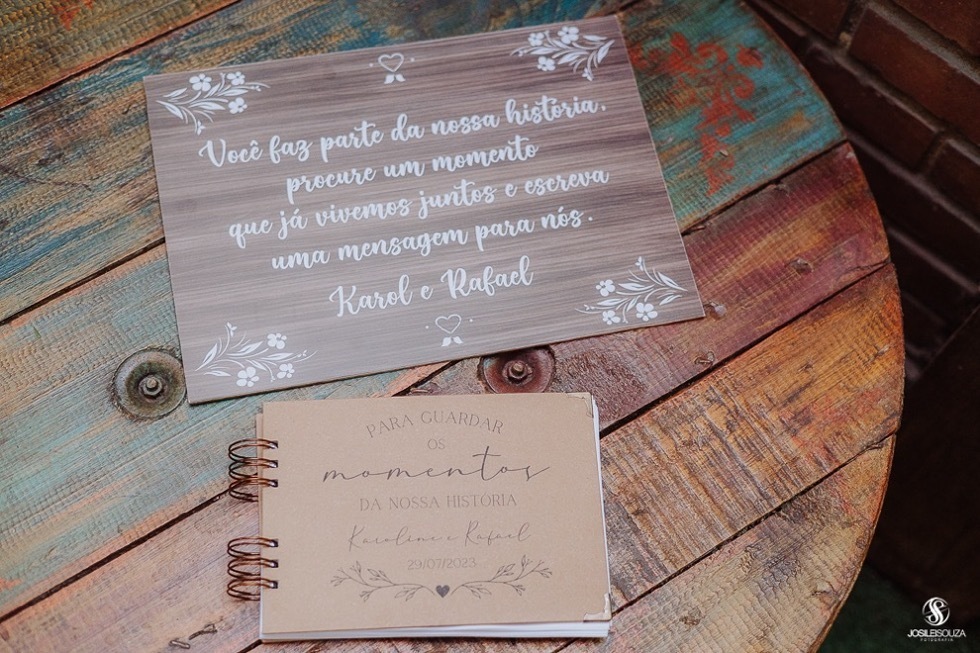 Você faz parte da nossa história,
procure um momento
que já vivemos juntos e escreva
uma mensagem para nós.
Karol e Rafael
PARA GUARDAR
OS
momentos
DA NOSSA HISTÓRIA
Karoline e Rafael
29/07/2023
JOSILEISOUZA
FOTOGRAFIA